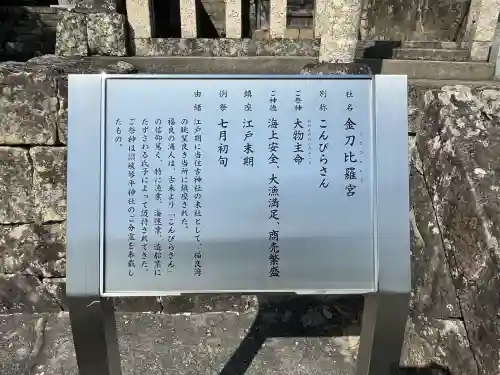 社名 金刀比羅宮
別称 こんぴらさん
ご祭神 大物主命
ご神徳 海上安全、大漁満足、商売繁盛
鎮座 江戸末期
例祭 七月初旬
由緒 江戸期に当住吉神社の末社として、福良湾
の眺望良き当所に鎮座された。
福良の浦人は、古来より「こんぴらさん」
の信仰篤く、特に漁業、海運業、造船業に
たずさわる氏子によって護持されてきた。
ご祭神は讃岐琴平神社のご分霊を奉戴し
たもの。